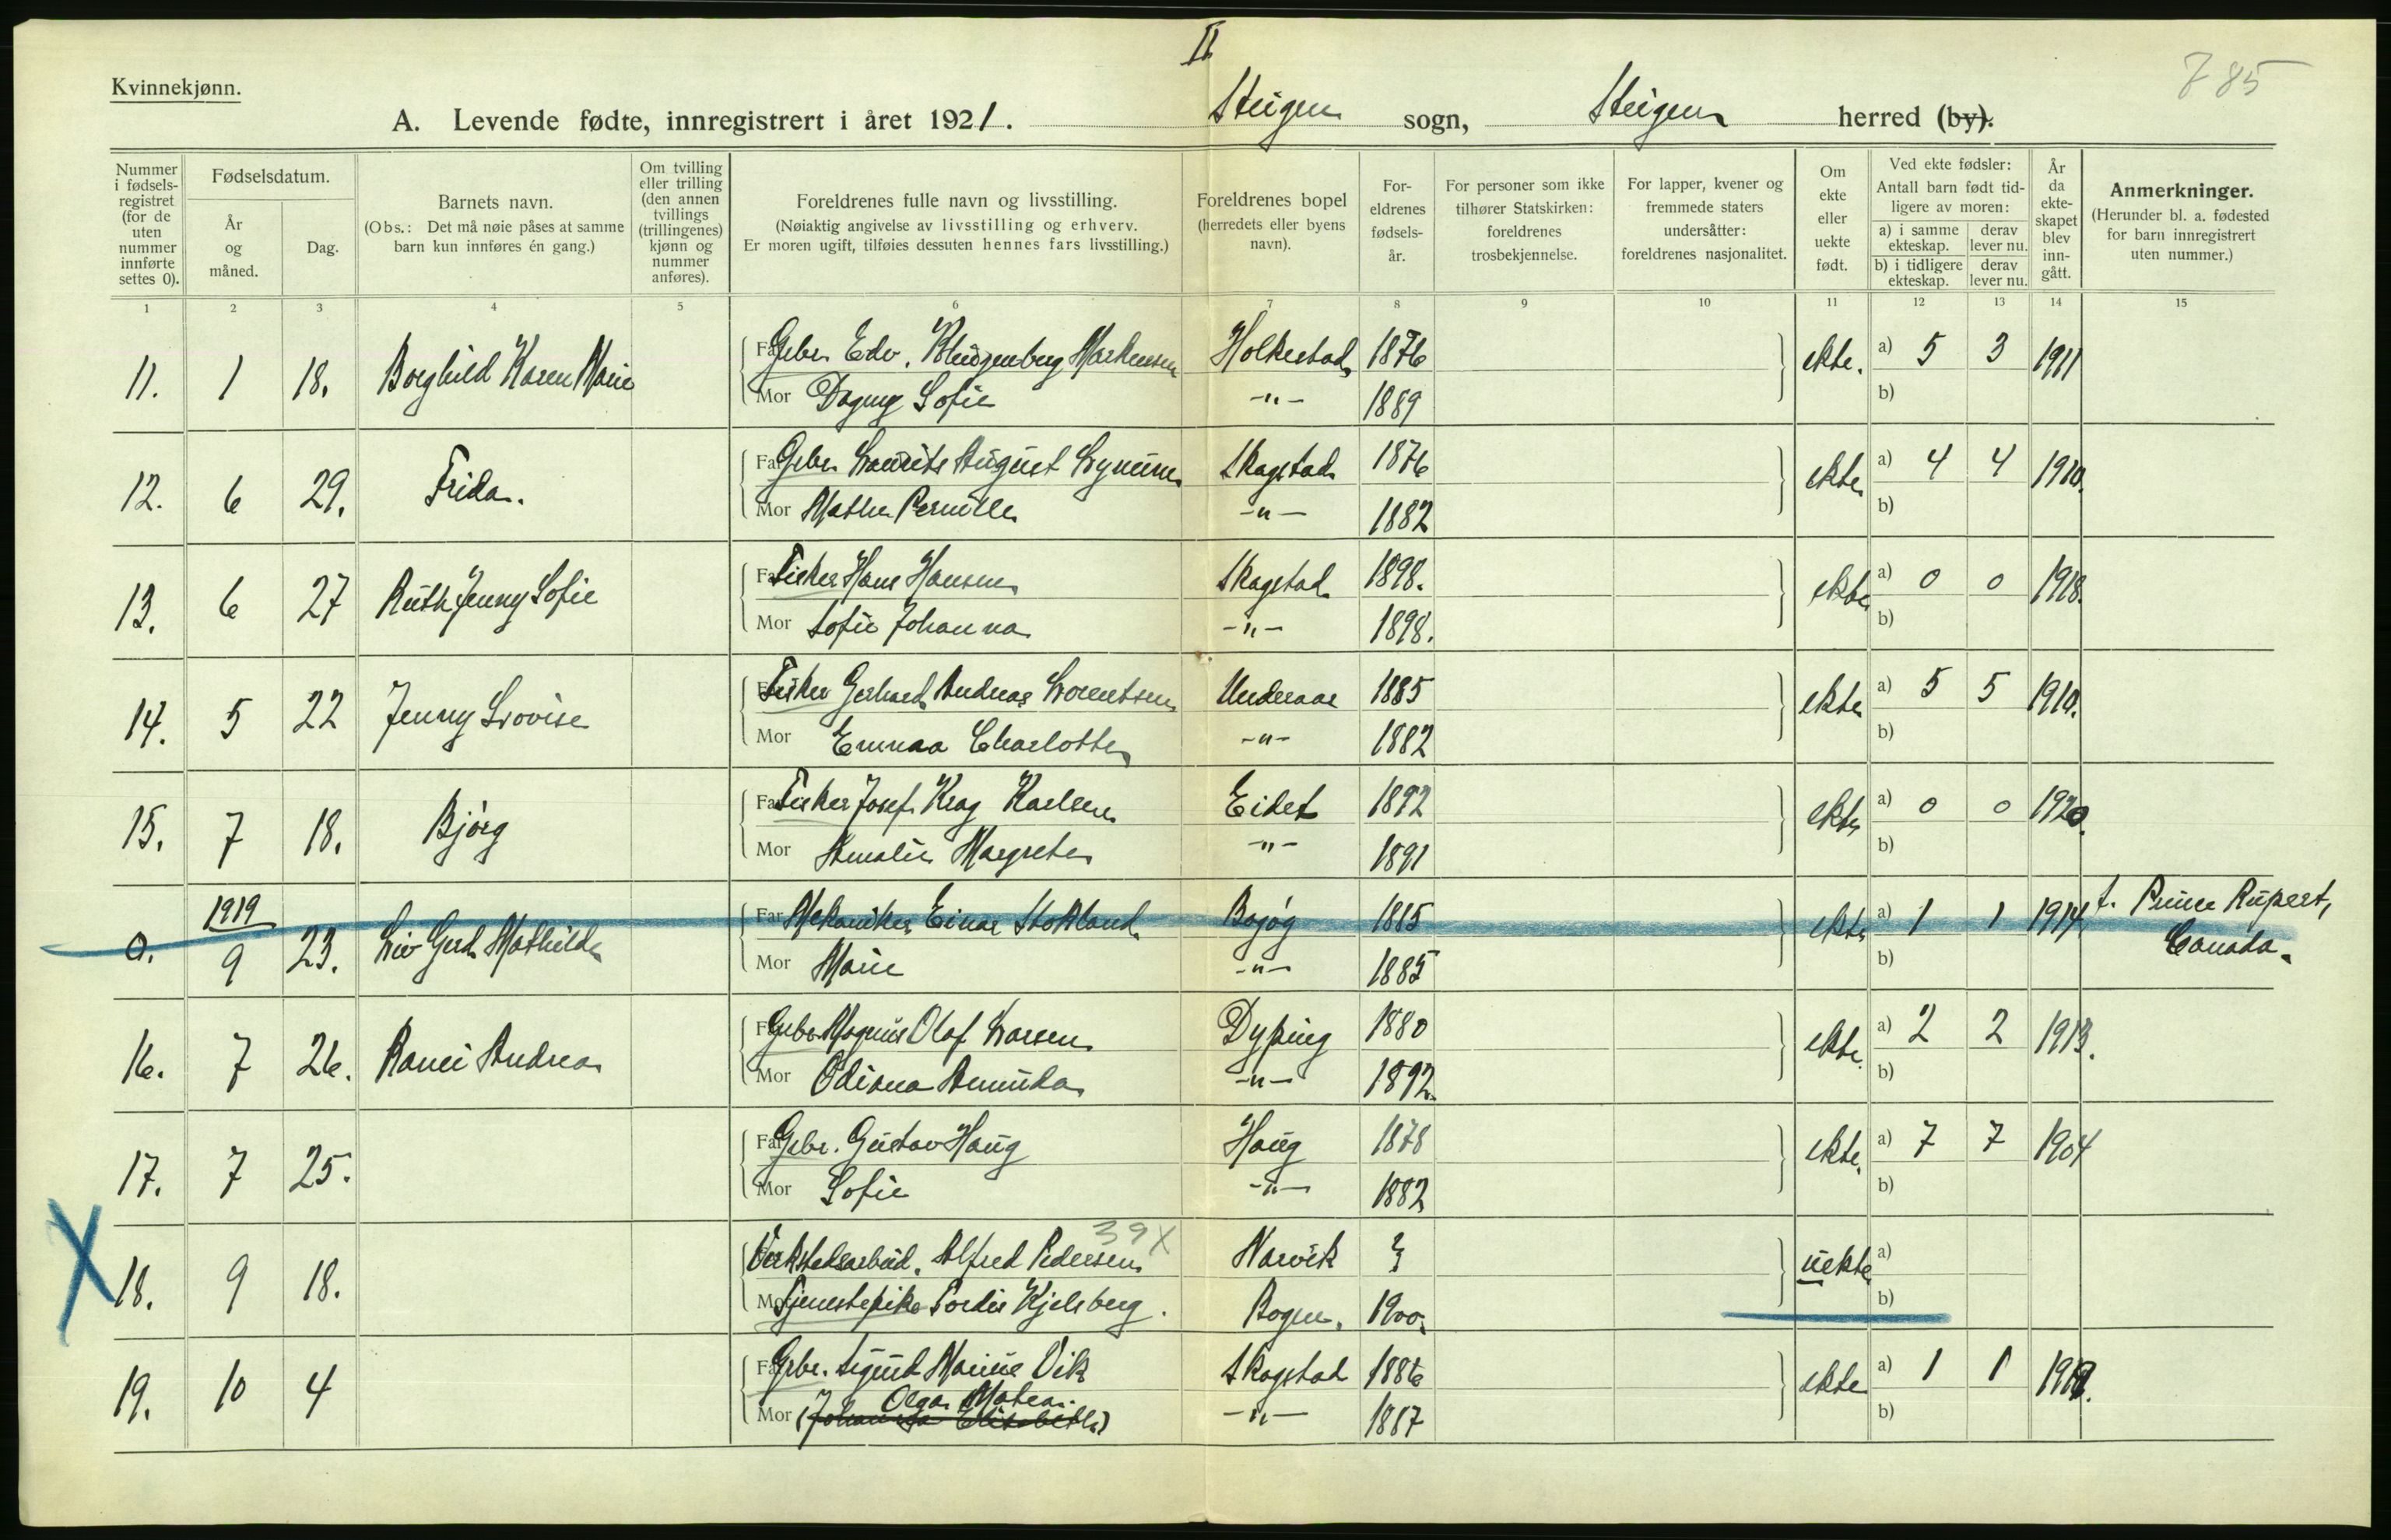 II
785
Kvinnekjønn.
A. Levende fødte, innregistrert i året 1921. Steigen sogn, Steigen herred (by).
Nummer i fødsels-registret (for de uten nummer innførte settes 0).
Fødselsdatum.
År og måned.
Dag.
Barnets navn.
(Obs.: Det må nøie påses at samme barn kun innføres én gang.)
Om tvilling eller trilling (den annen tvillings (trillingenes) kjønn og nummer anføres).
Foreldrenes fulle navn og livsstilling.
(Nøiaktig angivelse av livsstilling og erhverv.
Er moren ugift, tilføies dessuten hennes fars livsstilling.)
Foreldrenes bopel
(herredets eller byens navn).
For-eldrenes fødsels-år.
For personer som ikke tilhører Statskirken: foreldrenes trosbekjennelse.
For lapper, kvener og fremmede staters undersåtter: foreldrenes nasjonalitet.
Om ekte eller uekte født.
Ved ekte fødsler: Antall barn født tid-ligere av moren:
a) i samme ekteskap.
derav lever nu.
b) i tidligere ekteskap.
derav lever nu.
År da ekte-skapet blev inn-gått.
Anmerkninger.
(Herunder bl. a. fødested for barn innregistrert uten nummer.)
1 2 3 4 5 6 7 8 9 10 11 12 13 14 15
11. 1 18. Borghild Karen Marie Far Gbr. Edv. Markussen Holkestad 1876 ekte. a) 5 3 1911
Mor Dagny Sofie -"- 1889 b)
12. 6 29. Frida. Far Gbr. Laurits August Skagstad 1876 ekte a) 4 4 1910.
Mor Mathea Pernille -"- 1882 b)
13. 6 27 Ruth Jenny Sofie Far Fisker Hans Hansen Skagstad 1898. ekte a) 0 0 1918.
Mor Sofie Johanna -"- 1898. b)
14. 5 22 Jenny Lovise Far Fisker Gerhard Andreas Lorentsen 1885 ekte a) 5 5 1910.
Mor Emmaa Charlotte -"- 1882 b)
15. 7 18. Bjørg Far Fisker Josef Krag Karlsen Eidet 1892 ekte a) 0 0 1920.
Mor Amalie Margrete -"- 1891 b)
0. 1919 9 23. Liv Gerd Mathilde Far Mekaniker Einar Stokland Bogøy 1885 ekte a) 1 1 1914 f. Prince Rupert,
Mor Marie -"- 1885 b) Canada.
16. 7 26. Andrea Far Gbr. Magnus Olaf Larsen Dyping 1880 ekte. a) 2 2 1913.
Mor Odiana Aminda -"- 1892. b)
17. 7 25. Far Gbr. Gustav Haug Haug 1878 ekte. a) 7 7 1904
Mor Sofie -"- 1882 b)
39X
18. 9 18. Verkstedsarbeid. Alfred Pedersen Narvik ? uekte a)
Mor Tjenestepike Tordis Kjelsberg. Bogen. 1900. b)
19. 10 4 Far Gbr. Sigurd Marius Vik Skagstad 1886 ekte a) 1 1
Olga Matea.
Mor (Johanna Elisabeth) -"- 1887 b)